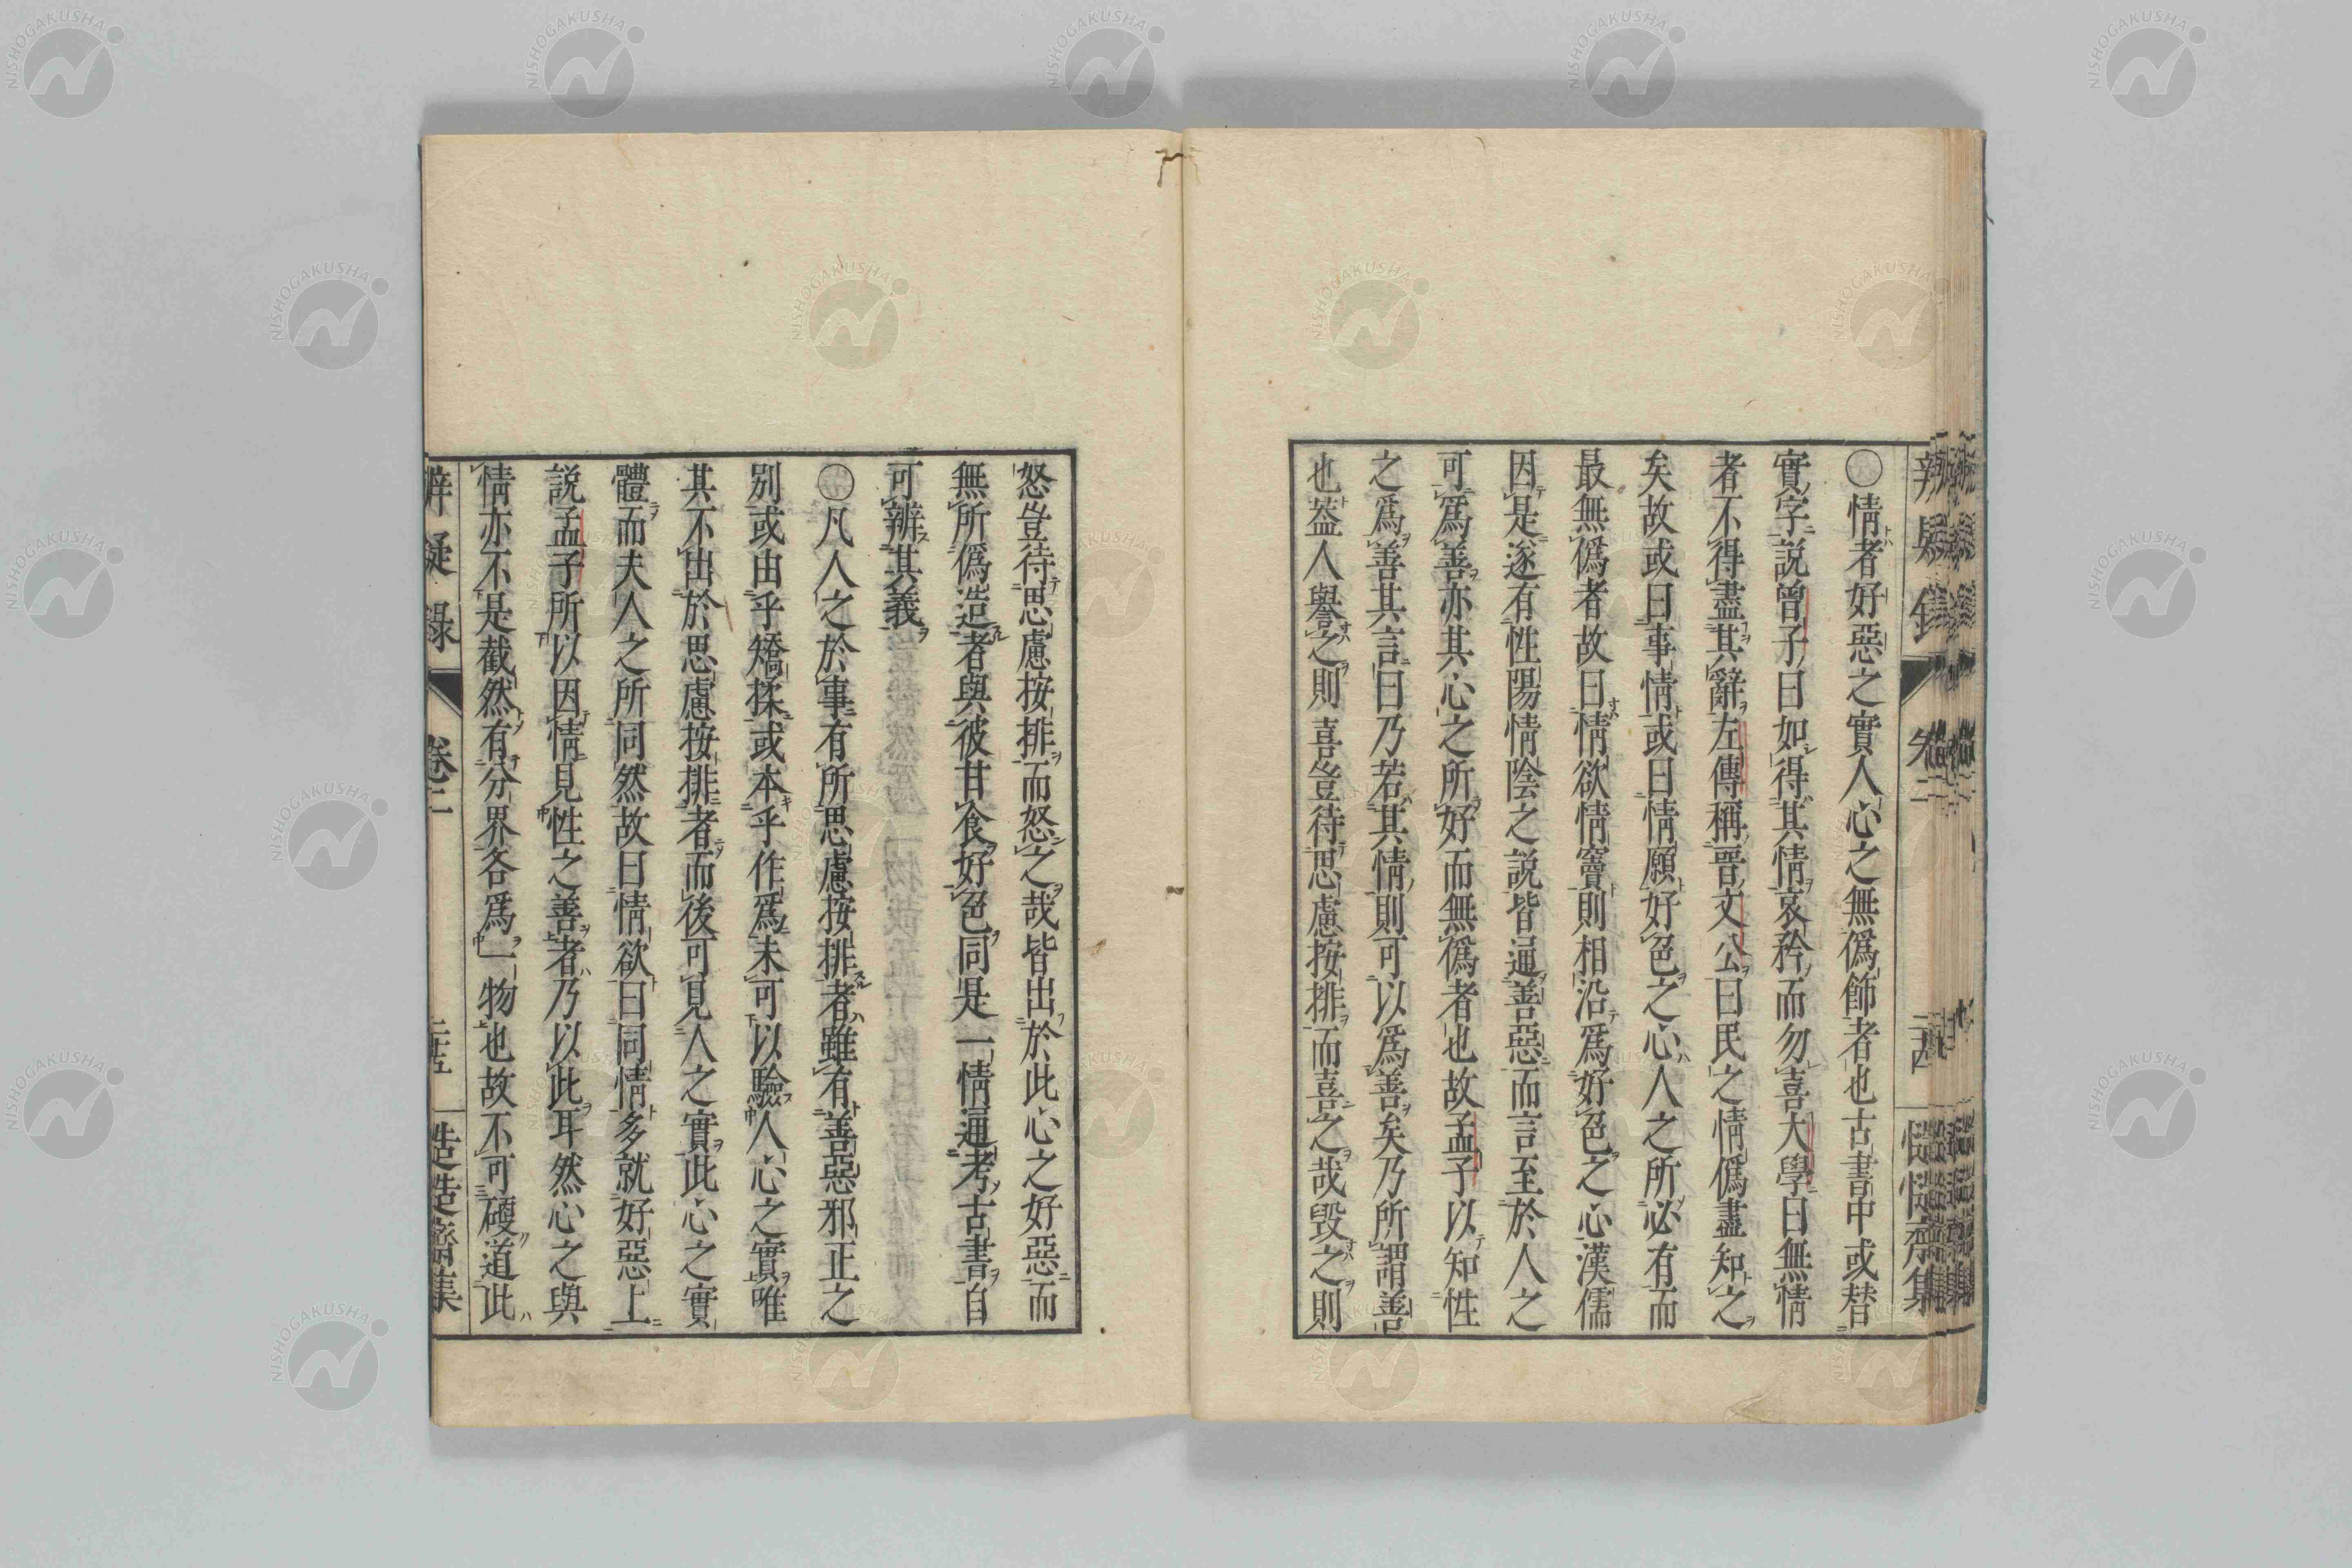 〇情者好惡之實人心之無僞飾者也古書中或替
實字說曾子曰如得其情哀矜而勿喜大學曰無情
者不得盡其辭左傳稱晉文公曰民之情僞盡知之
矣故或曰事情或曰情願好色之心人之所必有而
最無僞者故曰情欲情竇則相沿爲好色之心漢儒
因是遂有性陽情陰之說皆通善惡而言至於人之
可爲善亦其心之所好而無僞者也故孟子以知性
之爲善其言曰乃若其情則可以爲善矣乃所謂善
也葢人譽之則喜豈待思慮按排而喜之哉毀之則
怒豈待思慮按排而怒之哉皆出於此心之好惡而
無所僞造者與彼甘食好色同是一情通考古書自
可辨其義
〇凡人之於事有所思慮按排者雖有善惡邪正之
別或由乎矯揉或本乎作爲未可以驗人心之實唯
其不出於思慮按排者而後可見人之實此心之實
體而夫人之所同然故曰情欲曰同情多就好惡上
說孟子所以因情見性之善者乃以此耳然心之與
情亦不是截然有分界各爲一物也故不可硬道此
辨疑錄 卷二 二十五 慥慥齋集
NISHOGAKUSHA